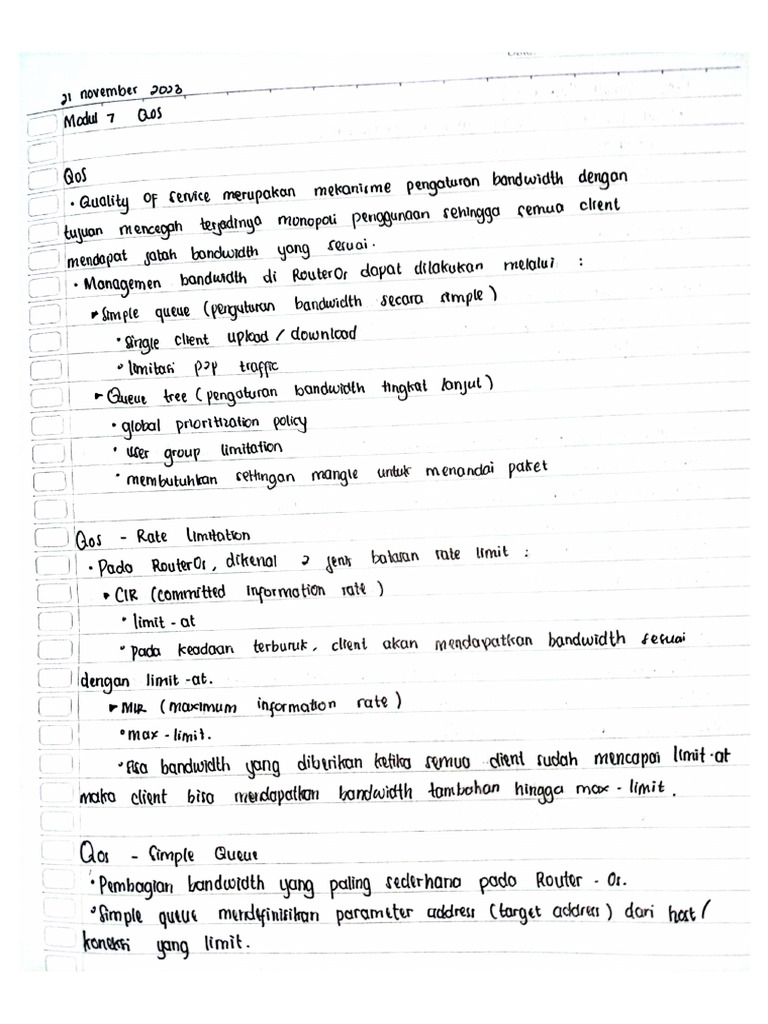 21 november 2023
Modul 7 QoS
QoS
• Quality Of service merupakan mekanisme pengaturan bandwidth dengan
tujuan mencegah terjadinya monopoli penggunaan sehingga semua client
mendapat jatah bandwidth yang sesuai.
• Managemen bandwidth di RouterOs dapat dilakukan melalui :
▸ Simple queue (pengaturan bandwidth secara simple)
• single client upload / download
• limitasi p2p traffic
▸ Queue tree (pengaturan bandwidth tingkat lanjut)
• global prioritization policy
• user group limitation
• membutuhkan settingan mangle untuk menandai paket
Qos - Rate Limitation
• Pada RouterOs, dikenal 2 jenis batasan rate limit :
▸ CIR (committed Information rate)
• limit - at
• pada keadaan terburuk, client akan mendapatkan bandwidth sesuai
dengan limit -at.
▸ MIR (maximum information rate)
• max - limit.
• sisa bandwidth yang diberikan ketika semua client sudah mencapai limit-at
maka client bisa mendapatkan bandwidth tambahan hingga max - limit.
Qos - Simple Queue
• Pembagian bandwidth yang paling sederhana pada Router - Os.
• Simple queue mendefinisikan parameter address (target address) dari host /
koneksi yang limit.